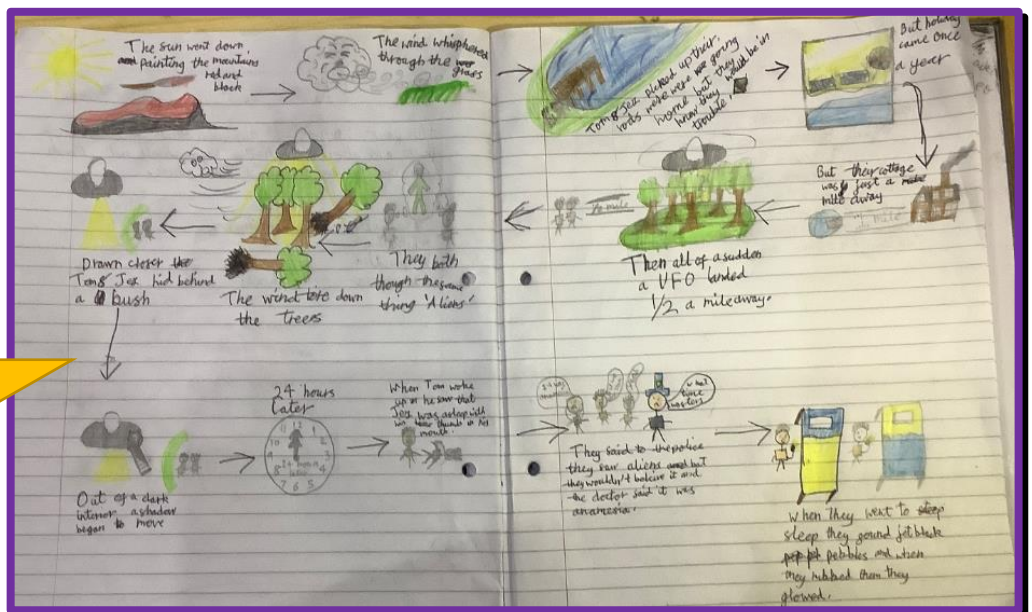 The sun went down,
painting the mountains
red and
black
The wind whisphered
through the
grass
Tom & Jez picked up their
rods were going
home but they
know they would be in
trouble.
But holiday
came once
a year
But their cottage
was just a
mile away
1 mile
Then all of a sudden
a UFO landed
1/2 a mile away.
½ mile
They both
though the same
thing 'Aliens'
The wind tore down
the trees
Drawn closer
Tom & Jez hid behind
a bush
Out of a dark
interior a shadow
began to move
24 hours
Later
12
1
2
3
4
5
6
7
8
9
10
11
24 hours
later
When Tom woke
up he saw that
Jez was asleep with
his thumb in his
mouth.
what
time
wasters
They said to the police
they saw aliens but
they wouldn't beleive it and
the doctor said it was
anamesia.
when they went to
sleep they gound jet black
pebbles and when
they rubbed them they
glowed.